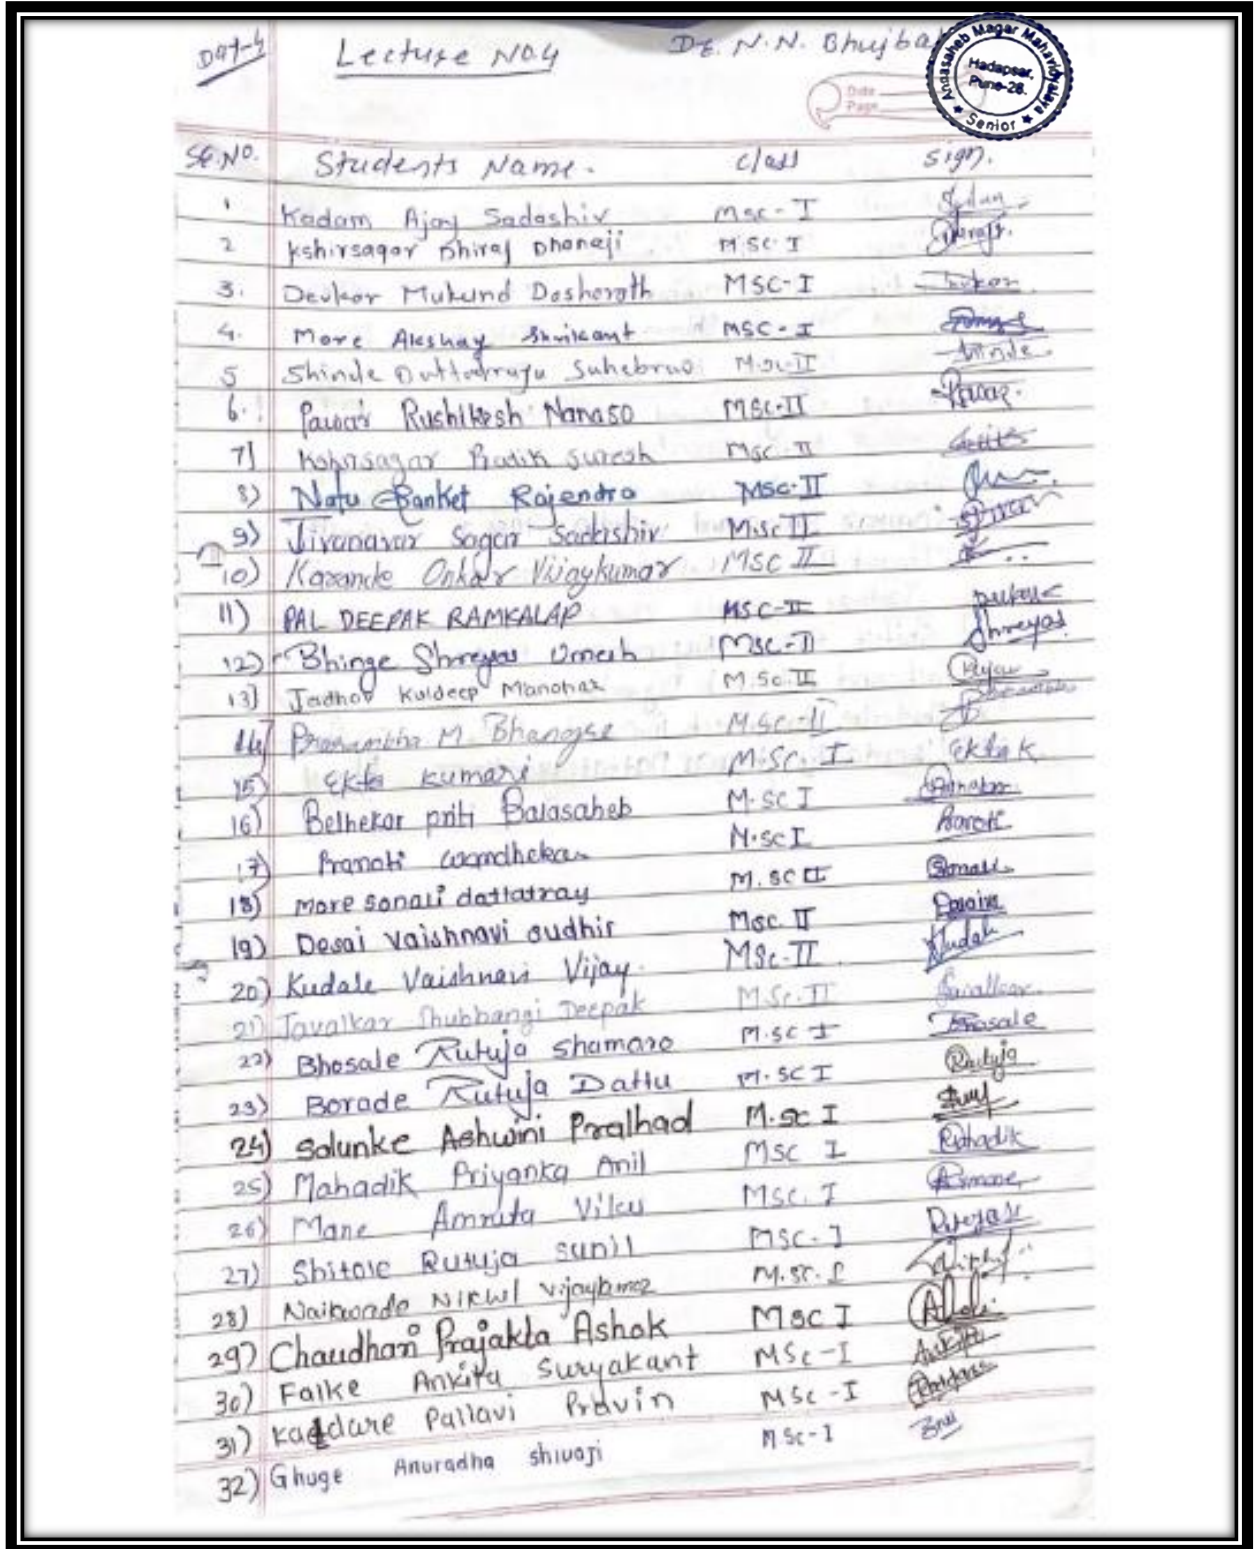 DAY-4 Lecture No.4 Dr. N.N. Bhujbal
Annasaheb Magar Mahavidyalaya
Hadapsar,
Pune-28.
★ Senior ★
Date
Page
Sr.No. Students Name. Class Sign.
1 Kadam Ajay Sadashiv Msc-I
2 Kshirsagar Dhiraj Dhanaji M.SC-I Dhiraj.
3. Devkar Mukund Dasharath MSC-I
4. More Akshay Shrikant MSC-I
5 Shinde Dattatraya Sahebrao M.sc-II Shinde.
6. Pawar Rushikesh Nanaso MSc-II Pawar.
7) Kshirsagar Pratik Suresh Msc-II
8) Natu Sanket Rajendra MSC-II
9) Jivanavar Sagar Sadashiv M.sc II
10) Karande Onkar Vijaykumar MSC II
11) PAL DEEPAK RAMKALAP MSC-II
12) Bhinge Shreyas Umesh MSC-II Shreyas
13) Jadhav Kuldeep Manohar M.Sc.II
14) Prarambha M. Bhangse M.Sc-II
15) Ekta kumari M.Sc.I Ekta K.
16) Belhekar priti Balasaheb M.SC I
17) Pranoti wandhekar M.SC I
18) More sonali dattatray M.SC II Sonali
19) Desai Vaishnavi sudhir Msc. II
20) Kudale Vaishnavi Vijay. MSc-II Kudale
21) Javalkar Shubbangi Deepak MSc-II Javalkar
22) Bhosale Rutuja Shamaro M.SC I Bhosale
23) Borade Rutuja Dattu M.SC I Rutuja
24) Solunke Ashwini Pralhad M.SC I
25) Mahadik Priyanka Anil MSC I
26) Mane Amruta Vilas MSC. I
27) Shitole Rutuja Sunil MSC-I
28) Naikwade NIKhil Vijaykumar M.SC.I
29) Chaudhari Prajakta Ashok MSC I
30) Falke Ankita Suryakant MSc-I Ankita
31) Kaldare Pallavi Pravin MSc-I
32) Ghuge Anuradha shivaji M.Sc-I